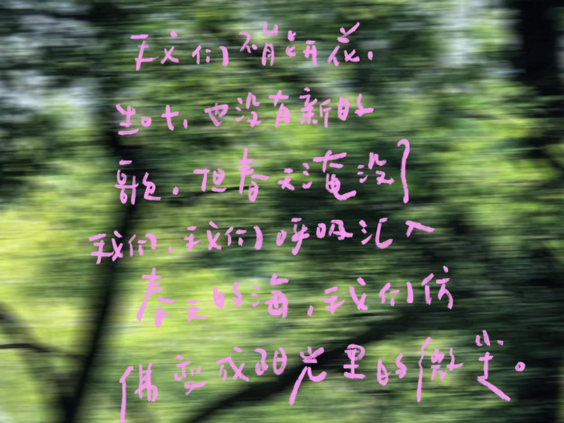 我们不曾開花.
生叶.也没有新的
颜色.但春天淹没了
我们.我们呼吸汇入
春天的海.我们仿
佛变成阳光里的微尘。